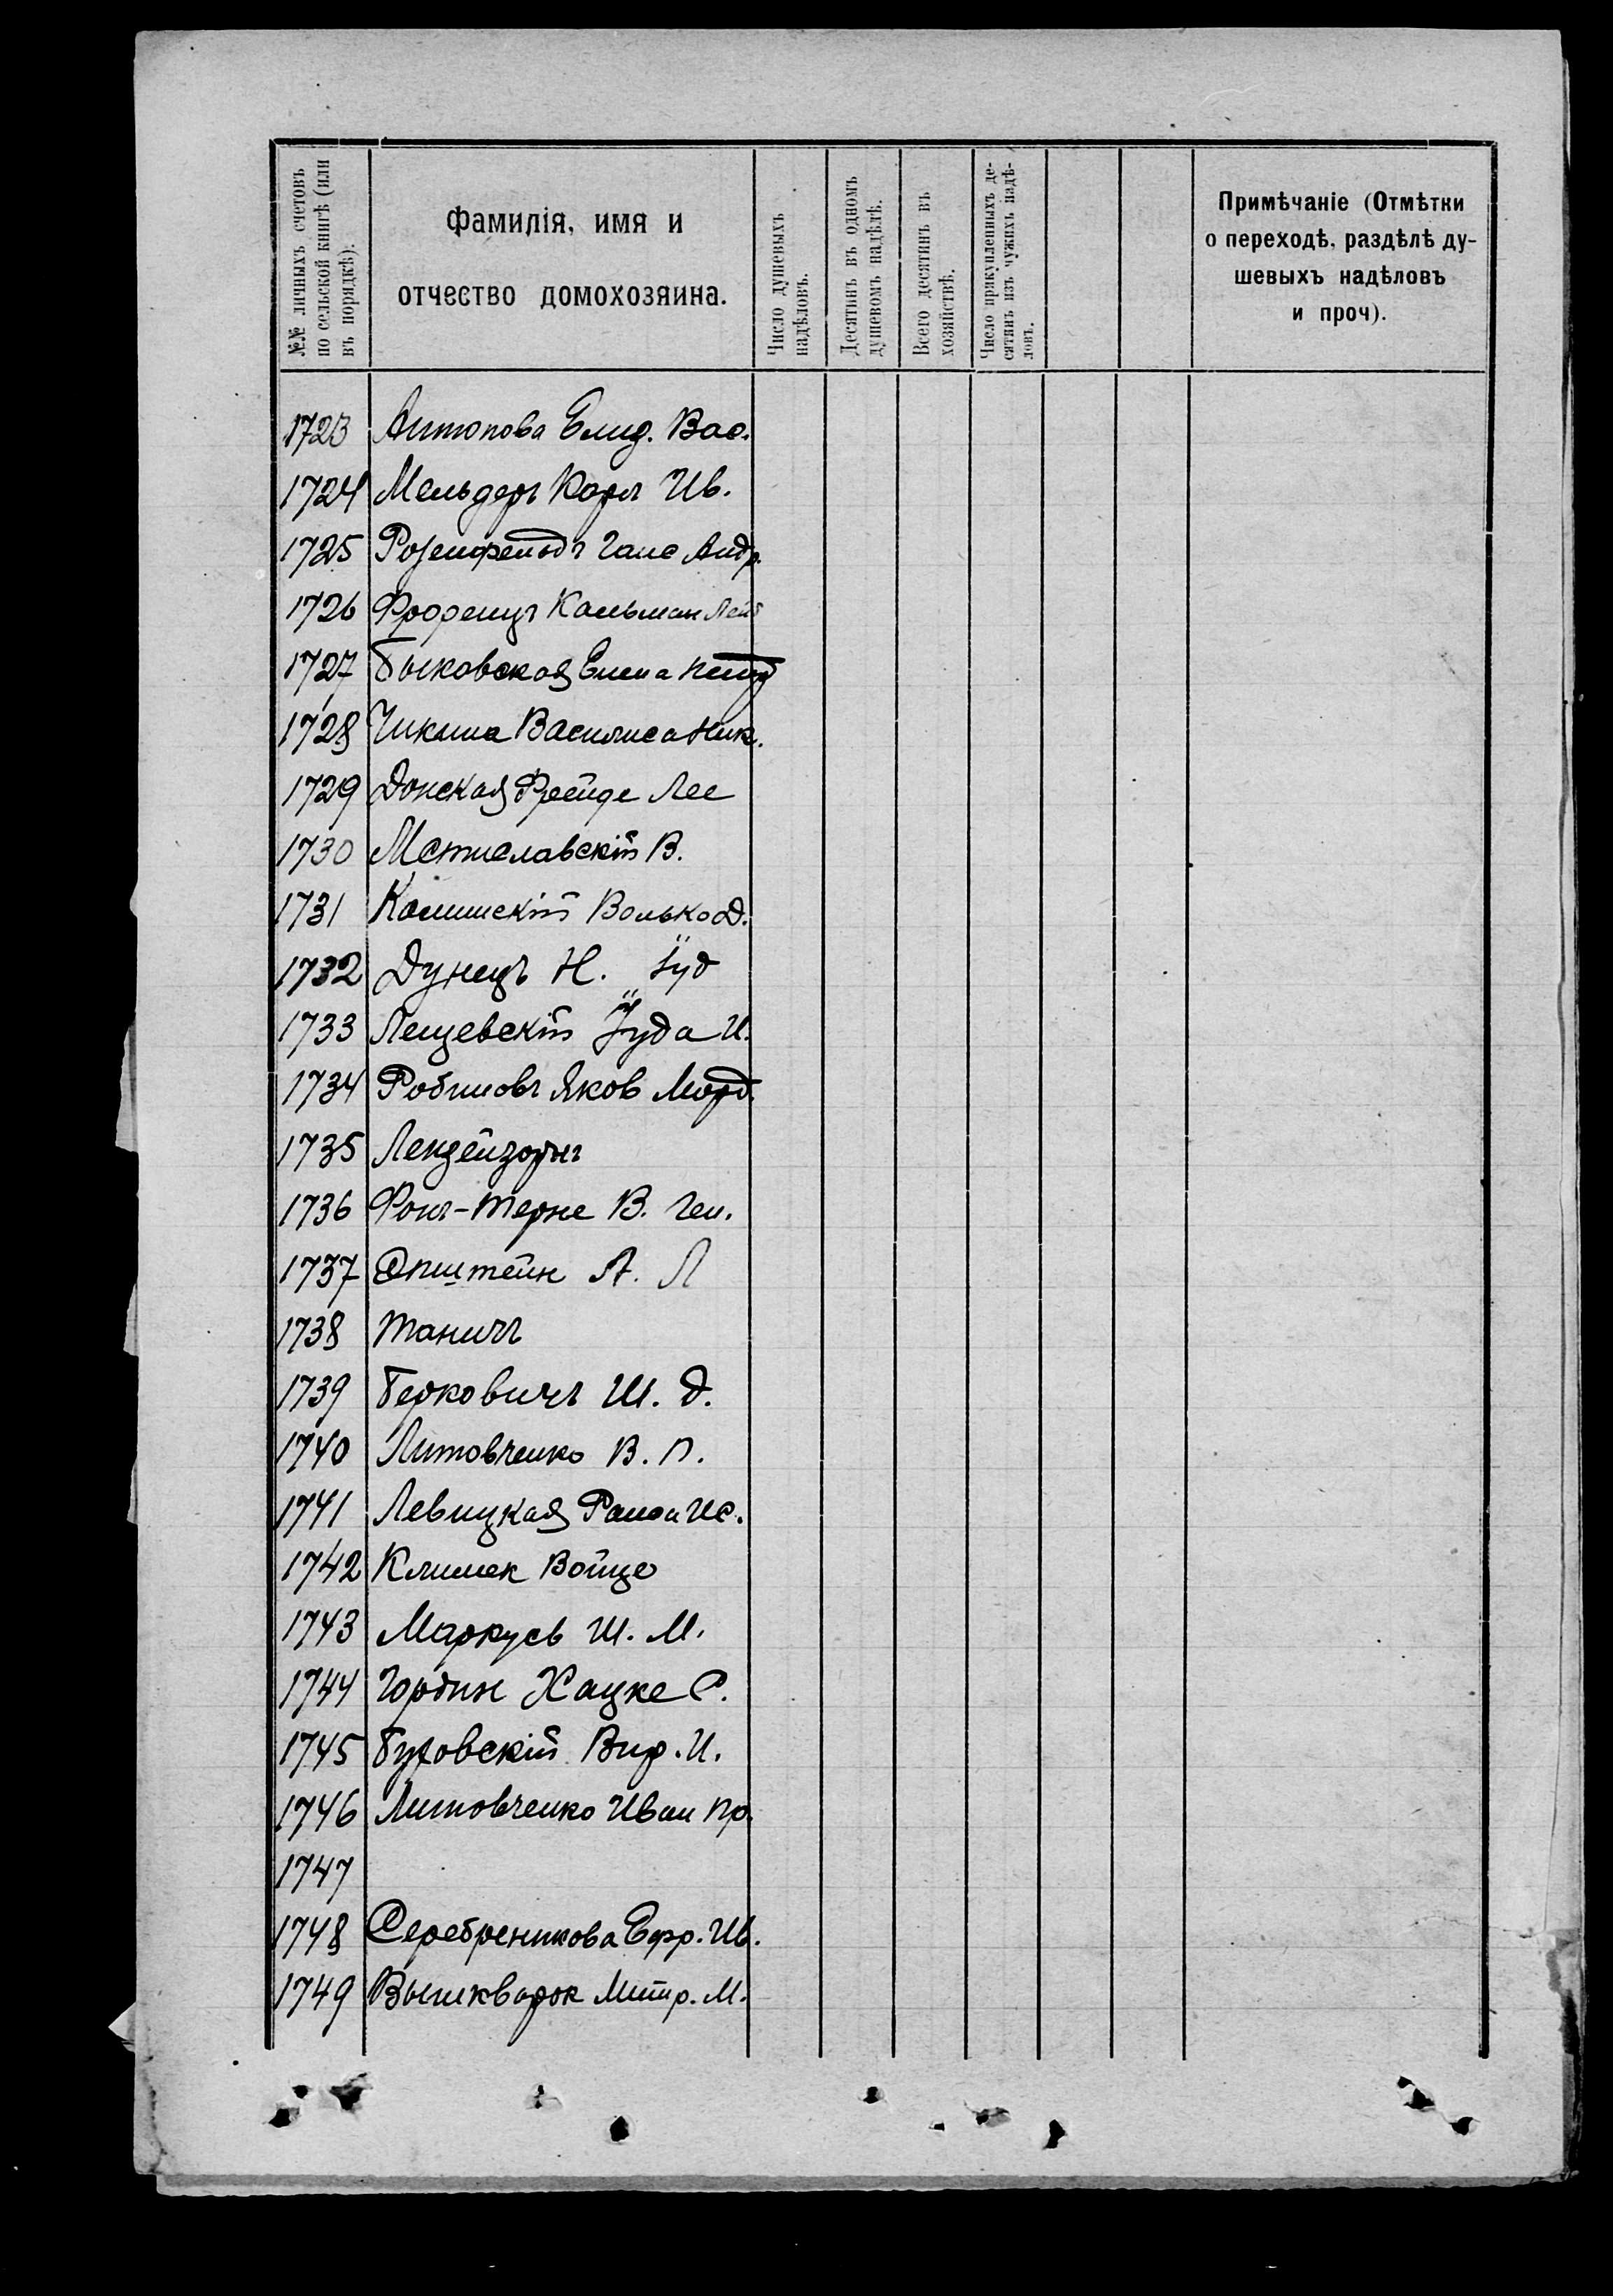 №№ личныхъ счетовъ
по сельской книгѣ (или
въ порядкѣ).
Фамилія, имя и
отчество домохозяина.
Число душевыхъ
надѣловъ.
Десятинъ въ одномъ
душевомъ надѣлѣ.
Всего десятинъ въ
хозяйствѣ.
Число прикупленныхъ де-
сятинъ изъ чужихъ надѣ-
ловъ.
Примѣчаніе (Отмѣтки
о переходѣ, раздѣлѣ ду-
шевыхъ надѣловъ
и проч).
1723 Антонова Вас.
1724 Мельдеръ Карл Ив.
1725 Розенфельдъ Ганс Андр.
1726 Кальман Лейб
1727 Быковская Елена
1728 Чикина Василиса Ник.
1729 Донская Фрейде Лее
1730 Мстиславскій В.
1731 Калинскій Волько Д.
1732 Дунецъ Н. Іуд
1733 Лещевскій Іуда И.
1734 Рабиновъ Яков Морд.
1735
1736 Фонъ-Терне В. Ген.
1737 Эпштейн А. Л
1738 Таничъ
1739 Берковичъ Ш. Д.
1740 Литовченко В. П.
1741 Левицкая Ис.
1742 Климек Войце
1743 Маркусъ Ш. М.
1744 Гордин Хацке С.
1745 Бутовскій И.
1746 Литовченко Иван Пр.
1747
1748 Серебреникова Ефр. Ив.
1749 Вышкварок Митр. М.